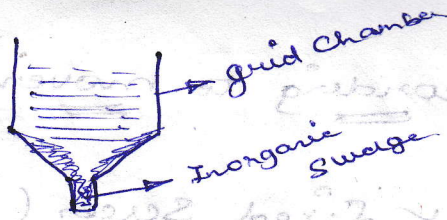 grid Chamber
Inorganic
Sludge